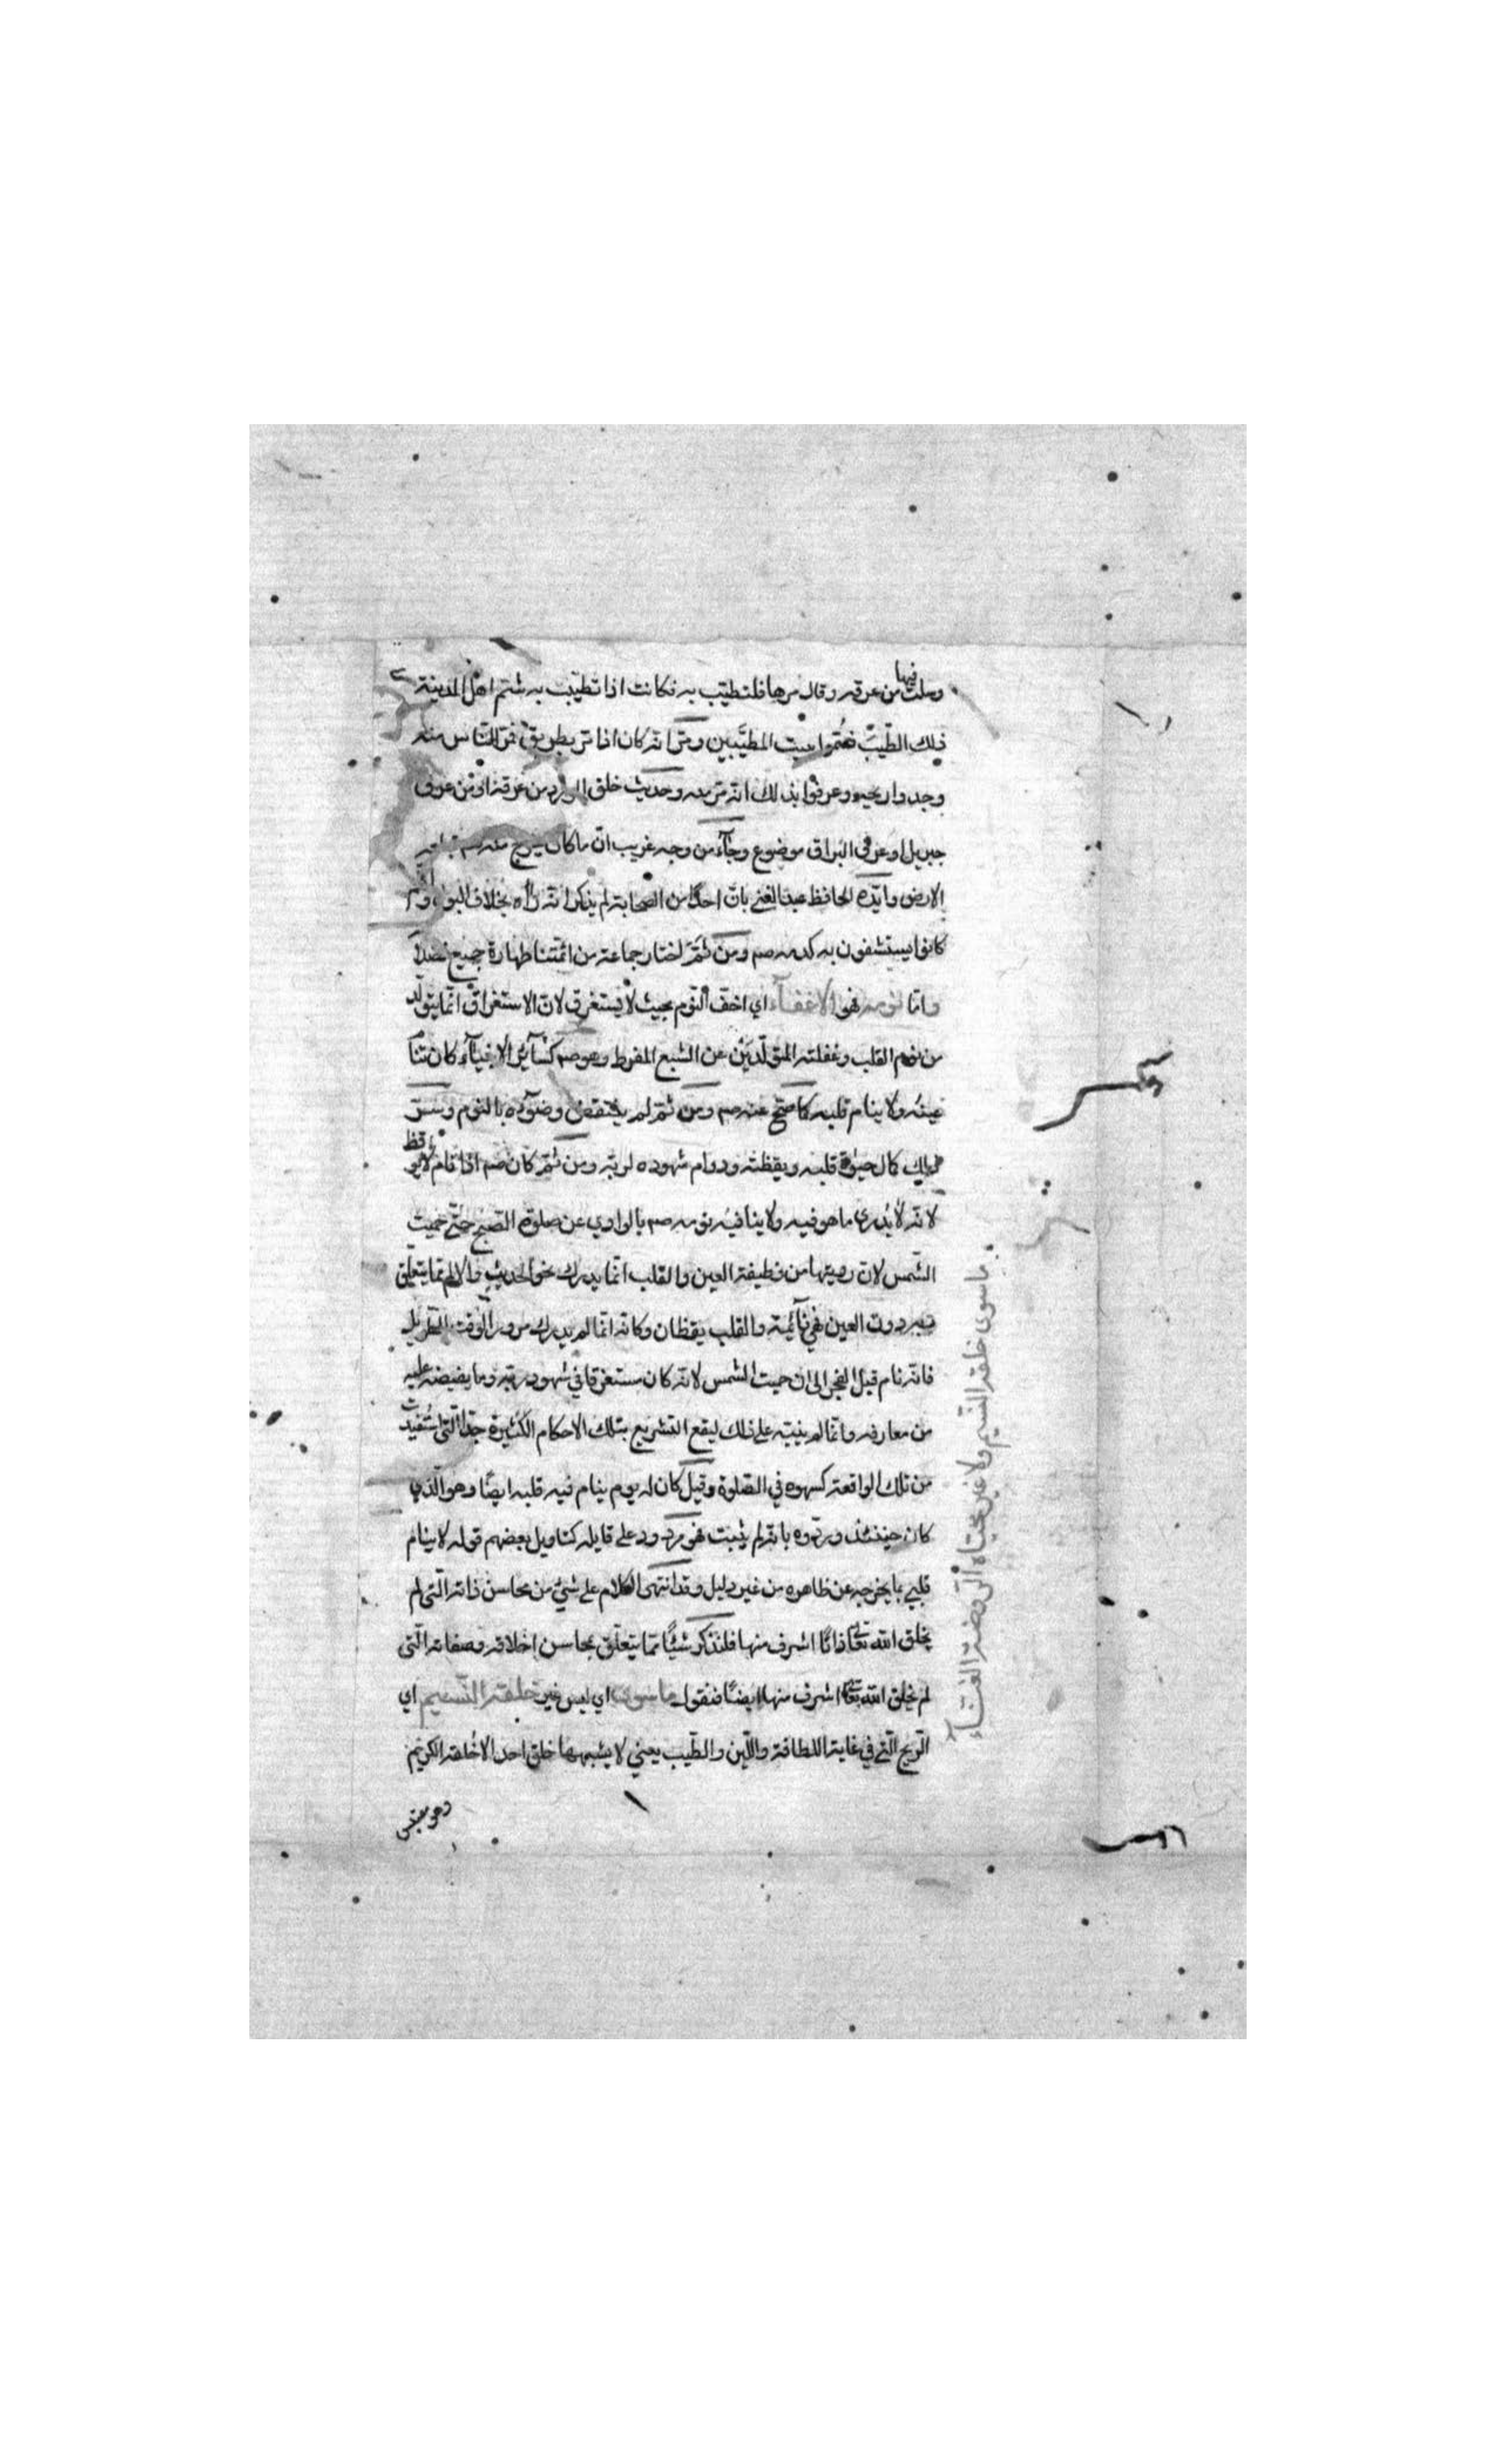 وسلت فيها من عرقه وقال مرها فلتطيب به فكانت اذا تطيّبت به شم اهل المدينة
ذلك الطّيب فسُمّوا بيت المطيّبين ومرّ انّه كان اذا مرّ بطريق فمرّ النّاس منه
وجدوا ريحه وعرفوا بذلك انّه مرّ منه وحديث خلق الورد من عرقه او من عرق
جبريل او عرق البراق موضوع وجآء من وجه غريب انّ ما كان يخرج منه صم تبلعه
الارض وايّده الحافظ عبد الغني بانّ احدًا من الصحابة لم يذكر انّه رآه بخلاف البول
كانوا يستشفون به كدمه صم ومن ثمّ اختار جماعة من ائمّتنا طهارة جميع فضلا
وامّا نومه فهو الاغفآء اي اخفّ النّوم بحيث لا يستغرق لانّ الاستغراق انّما يتولّد
من نوم القلب وغفلته المتولّدين عن الشبع المفرط وهو صم كسآئر الانبيآء كان تنا
عينه ولا ينام قلبه كما صحّ عنه صم ومن ثمّ لم ينتقض وضوّه بالنوم وسرّ
ذلك كمال حيوة قلبه ويقظته ودوام شهوده لربّه ومن ثمّ كان صم اذا نام لا يوقظ
لانّه لا يُدرى ما هو فيه ولا ينافيه نومه صم بالوادي عن صلوة الصّبح حتّى حميت
الشّمس لانّ رؤيتها من وظيفة العين والقلب انّما يدرك نحو الحديث والالم ممّا يتعلّق
به دون العين فهي نآئمة والقلب يقظان وكانّه انّما لم يدرك مرور الوقت الطّويل
فانّه نام قبل الفجر الى ان حميت الشمس لانّه كان مستغرقا في شهود ربّه وما يفيضه عليه
من معارفه وانّما لم ينبّه على ذلك ليقع التشريع بتلك الاحكام الكثيرة جدّا الّتي استُفيدت
من تلك الواقعة كسهوه في الصّلوة وقيل كان له يوم ينام فيه قلبه ايضًا وهو الّذي
كان حينئذ وردّوه بانّه لم يثبت فهو مردود على قايله كتاويل بعضهم قوله لا ينام
قلبي بما يخرجه عن ظاهره من غير دليل وقد انتهى الكلام على شئ من محاسن ذاته الّتي لم
يخلق الله تعالى ذاتًا اشرف منها فلنذكر شيئًا ممّا يتعلّق بمحاسن اخلاقه وصفاته الّتي
لم يخلق الله تعالى اشرف منها ايضًا فنقول ما سوى اي ليس غير خلقه النّسيم اي
الرّيح الّتي في غاية اللطافة واللّين والطّيب يعني لا يشبهها خلق احد الا خلقه الكريم
ما سوى خلقه النّسيم ولا غير محيّاه الرّوضة الغنّآء